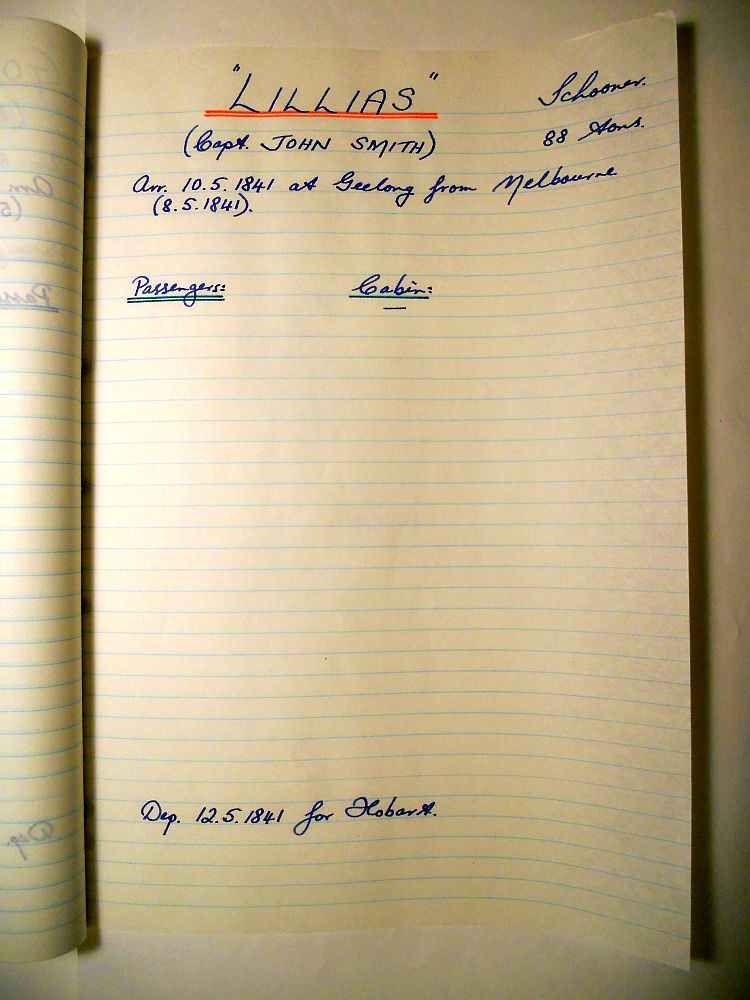 "LILLIAS" Schooner.
(Capt. JOHN SMITH) 88 tons.
Arr. 10.5.1841 at Geelong from Melbourne
(8.5.1841).
Passengers: Cabin:
—
Dep. 12.5.1841 for Hobart.